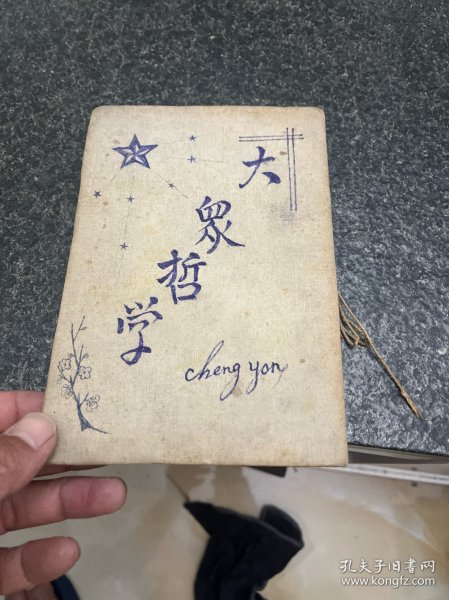 大眾哲学
cheng yon
孔夫子旧书网
www.kongfz.com